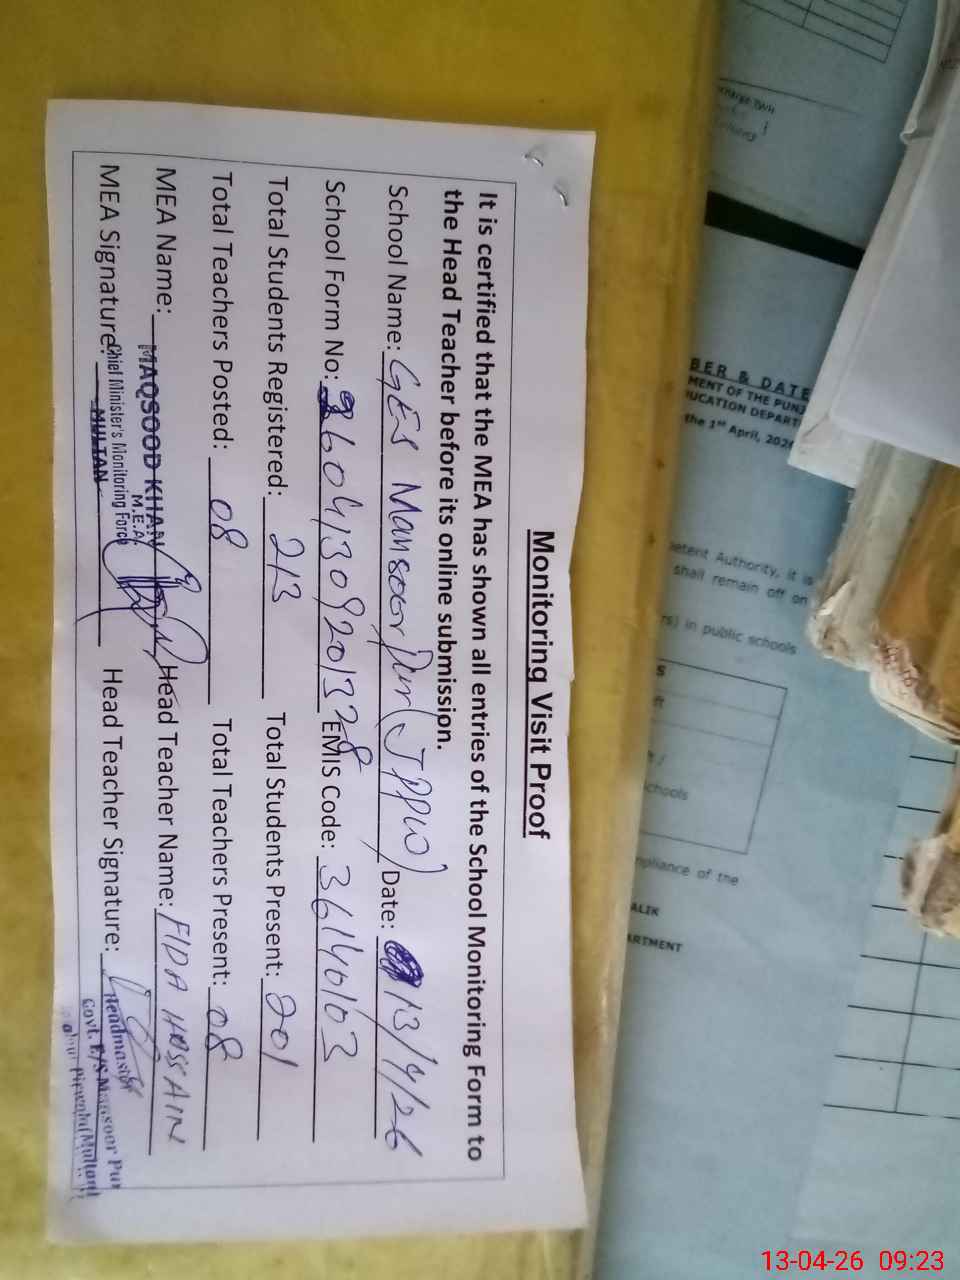 Monitoring Visit Proof
It is certified that the MEA has shown all entries of the School Monitoring Form to
the Head Teacher before its online submission.
School Name: GES Mansoor Pur (JPPW) Date: 13/4/26
School Form No: EMIS Code: 36140103
Total Students Registered: 213 Total Students Present: 201
Total Teachers Posted: 08 Total Teachers Present: 08
MEA Name: MAQSOOD KHAN Head Teacher Name: FIDA HUSSAIN
M.E.A.
MEA Signature: Chief Minister's Monitoring Force Head Teacher Signature:
MULTAN
Headmaster
Govt. E/S Mansoor Pur
Pirwala (Multan)
BER & DATE
MENT OF THE PUNJ
UCATION DEPART
the 1st April, 202
etent Authority, it is
shall remain off on
rs) in public schools
chools
pliance of the
ALIK
ARTMENT
13-04-26 09:23